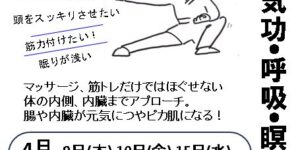 頭をスッキリさせたい
筋力付けたい!
眠りが浅い
気功・呼吸・瞑
マッサージ、筋トレだけではほぐせない
体の内側、内臓までアプローチ。
腸や内臓が元気につやピカ肌になる!
4月 9日(木)10日(金)15日(水)